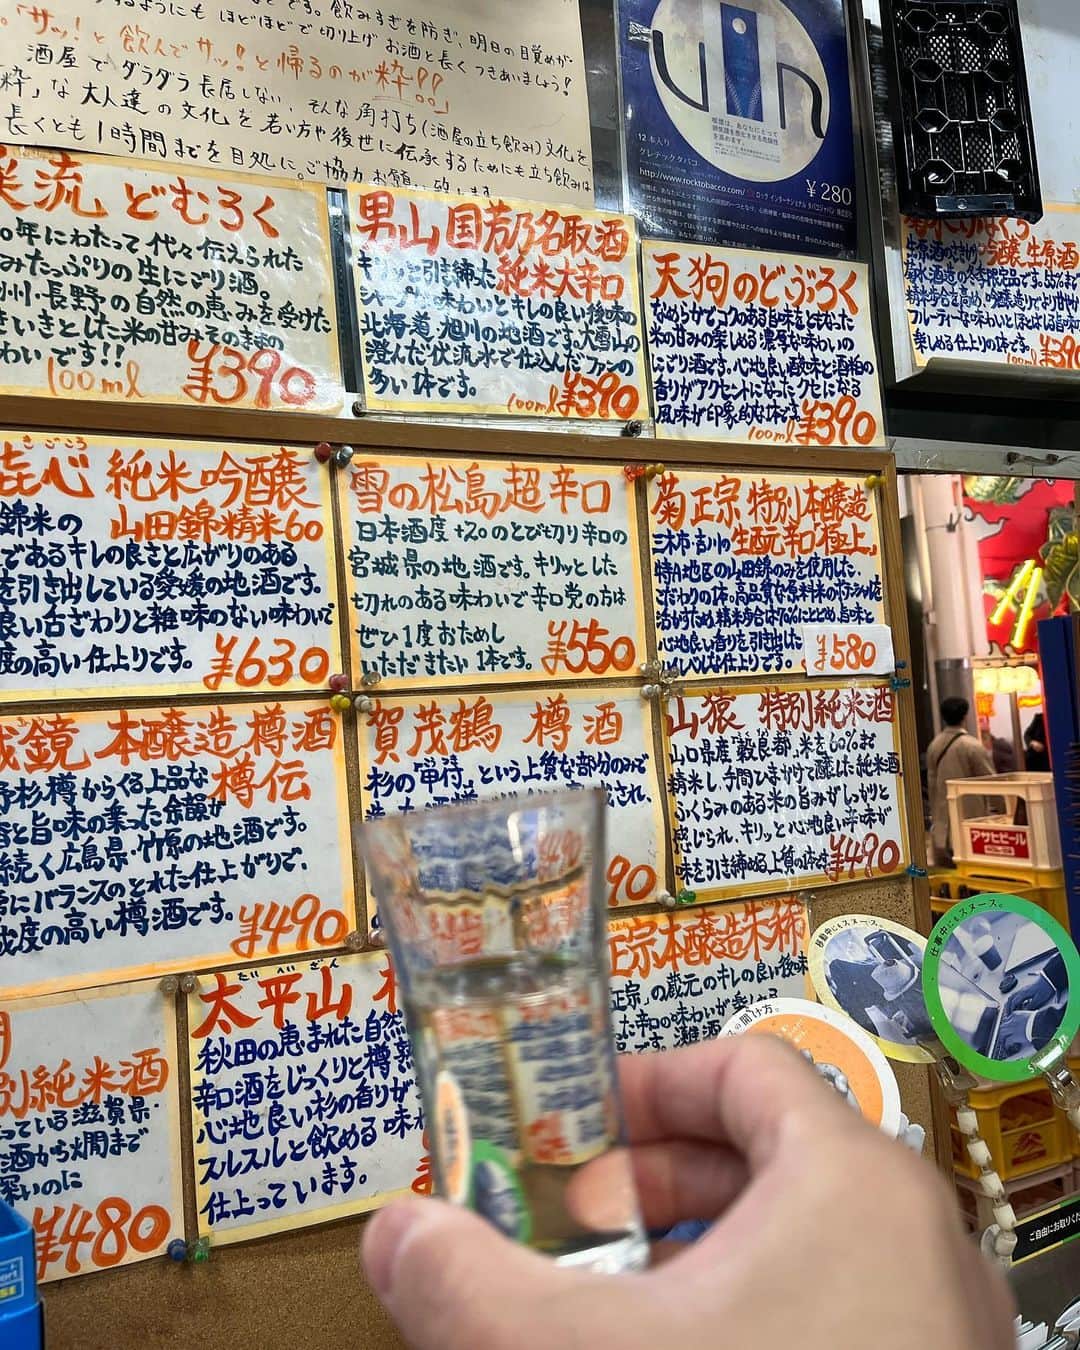 です。飲みすぎを防ぎ、明日の目覚めが
するようにも ほどほどで切り上げ お酒と長く つきあいましょう!
「サッ!と飲んでサッ!と帰るのが粋!!」
酒屋で、ダラダラ長居しない、そんな角打ち(酒屋の立ち飲み)文化を
粋」な大人達の文化を若い方や後世に伝承するためにも立ち飲みは
長くとも1時間までを目処に。ご協力お願い致します
12本入り
クレテックタバコ
http://www.rocktobacco.com/
¥280
流 どむろく
年にわたって代々伝えられた
みたっぷりの生にごり酒。
州・長野の自然の恵みを受けた
きいきとした米の甘みそのままの
わいです!!
100ml ¥390
男山 国芳乃名取酒
純米大辛口
キリッと引き締った
シャープな味わいとキレの良い後味の
北海道旭川の地酒です。大雪山の
澄んだ伏流水で仕込んだファンの
多い1本です。
100ml ¥390
天狗のどぶろく
なめらかでコクのある旨味をともなった
米の甘みの楽しめる濃厚な味わいの
にごり酒です。心地良い酸味と酒粕の
香りがアクセントになったクセになる
風味が印象的な1本です。
100ml ¥390
吟醸 生原酒
楽しめる仕上りの1本です。
きごころ
心 純米吟醸
山田錦精米60
錦米の
であるキレの良さと広がりのある
を引き出している愛媛の地酒です。
良い舌ざわりと雑味のない味わいで
度の高い仕上りです。
¥630
雪の松島超辛口
日本酒度+20のとび切り辛口の
宮城県の地酒です。キリッとした
切れのある味わいで辛口党の方は
ぜひ1度おためし
いただきたい1本です。
¥550
菊正宗 特別本醸造
生酛辛口「極上」
三木市・吉川の
特A地区の山田錦のみを使用した
こだわりの1本。高品質な原料米のポテンシャルを
活かすため、精米歩合は70%にとどめ、旨味と
心地良い香りを引き出した
¥580
鏡 本醸造樽酒
樽伝
野杉樽からくる上品な
香と旨味の乗った余韻が
続く広島県・竹原の地酒です。
常にバランスのとれた仕上がりで、
成度の高い樽酒です。
¥490
賀茂鶴 樽酒
杉の“甲付”という上質な部分のみで
山猿 特別純米酒
山口県産“穀良都”米を60%まで
精米し、手間ひまかけて醸した純米酒
ふくらみのある米の旨みがしっかりと
感じられ、キリッと心地良い辛味が
味を引き締める上質の1本です
¥490
別純米酒
っている滋賀県・
酒から燗まで
深いのに
¥480
だいへいざん
太平山
秋田の恵まれた自然
辛口酒をじっくりと樽熟
心地良い杉の香りが
スルスルと飲める味わ
仕上っています。
正宗本醸造朱稀
正宗」の蔵元のキレの良い後味
た辛口の味わいが楽しめる
移動中にもスヌース。
仕事中にもスヌース。
の開け方。
アサヒビール
ご自由にお取りくだ